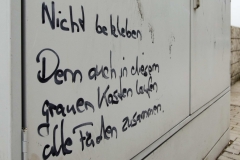 Nicht bekleben
Denn auch in diesem
grauen Kasten laufen
alle Fäden zusammen.